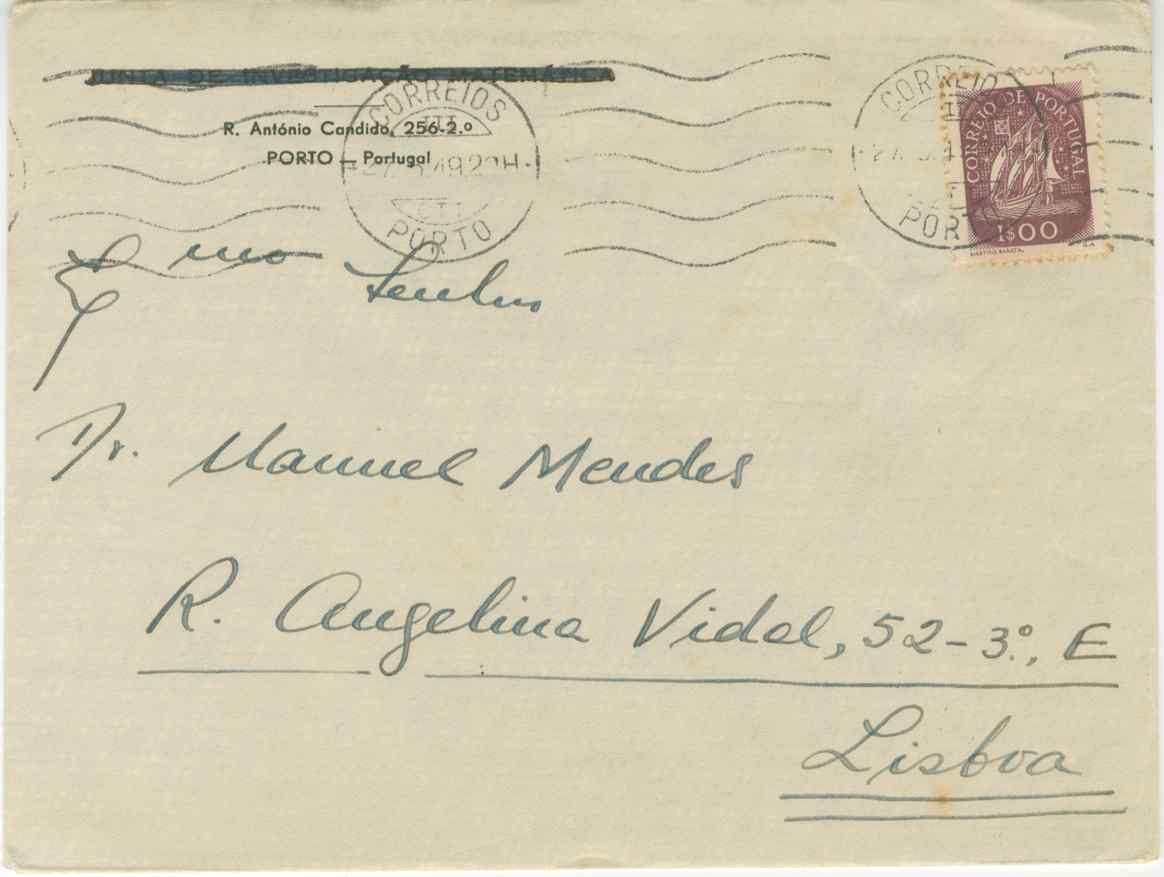 JUNTA DE INVESTIGAÇÃO MATEMÁTICA
R. António Candido, 256-2.º
PORTO — Portugal
CORREIOS
49 20H
CTT
PORTO
CORREIOS
PORTO
CORREIO DE PORTUGAL
1$00
MARTINS BARATA
Exmo Senhor
Dr. Manuel Mendes
R. Angelina Vidal, 52-3.º, E
Lisboa